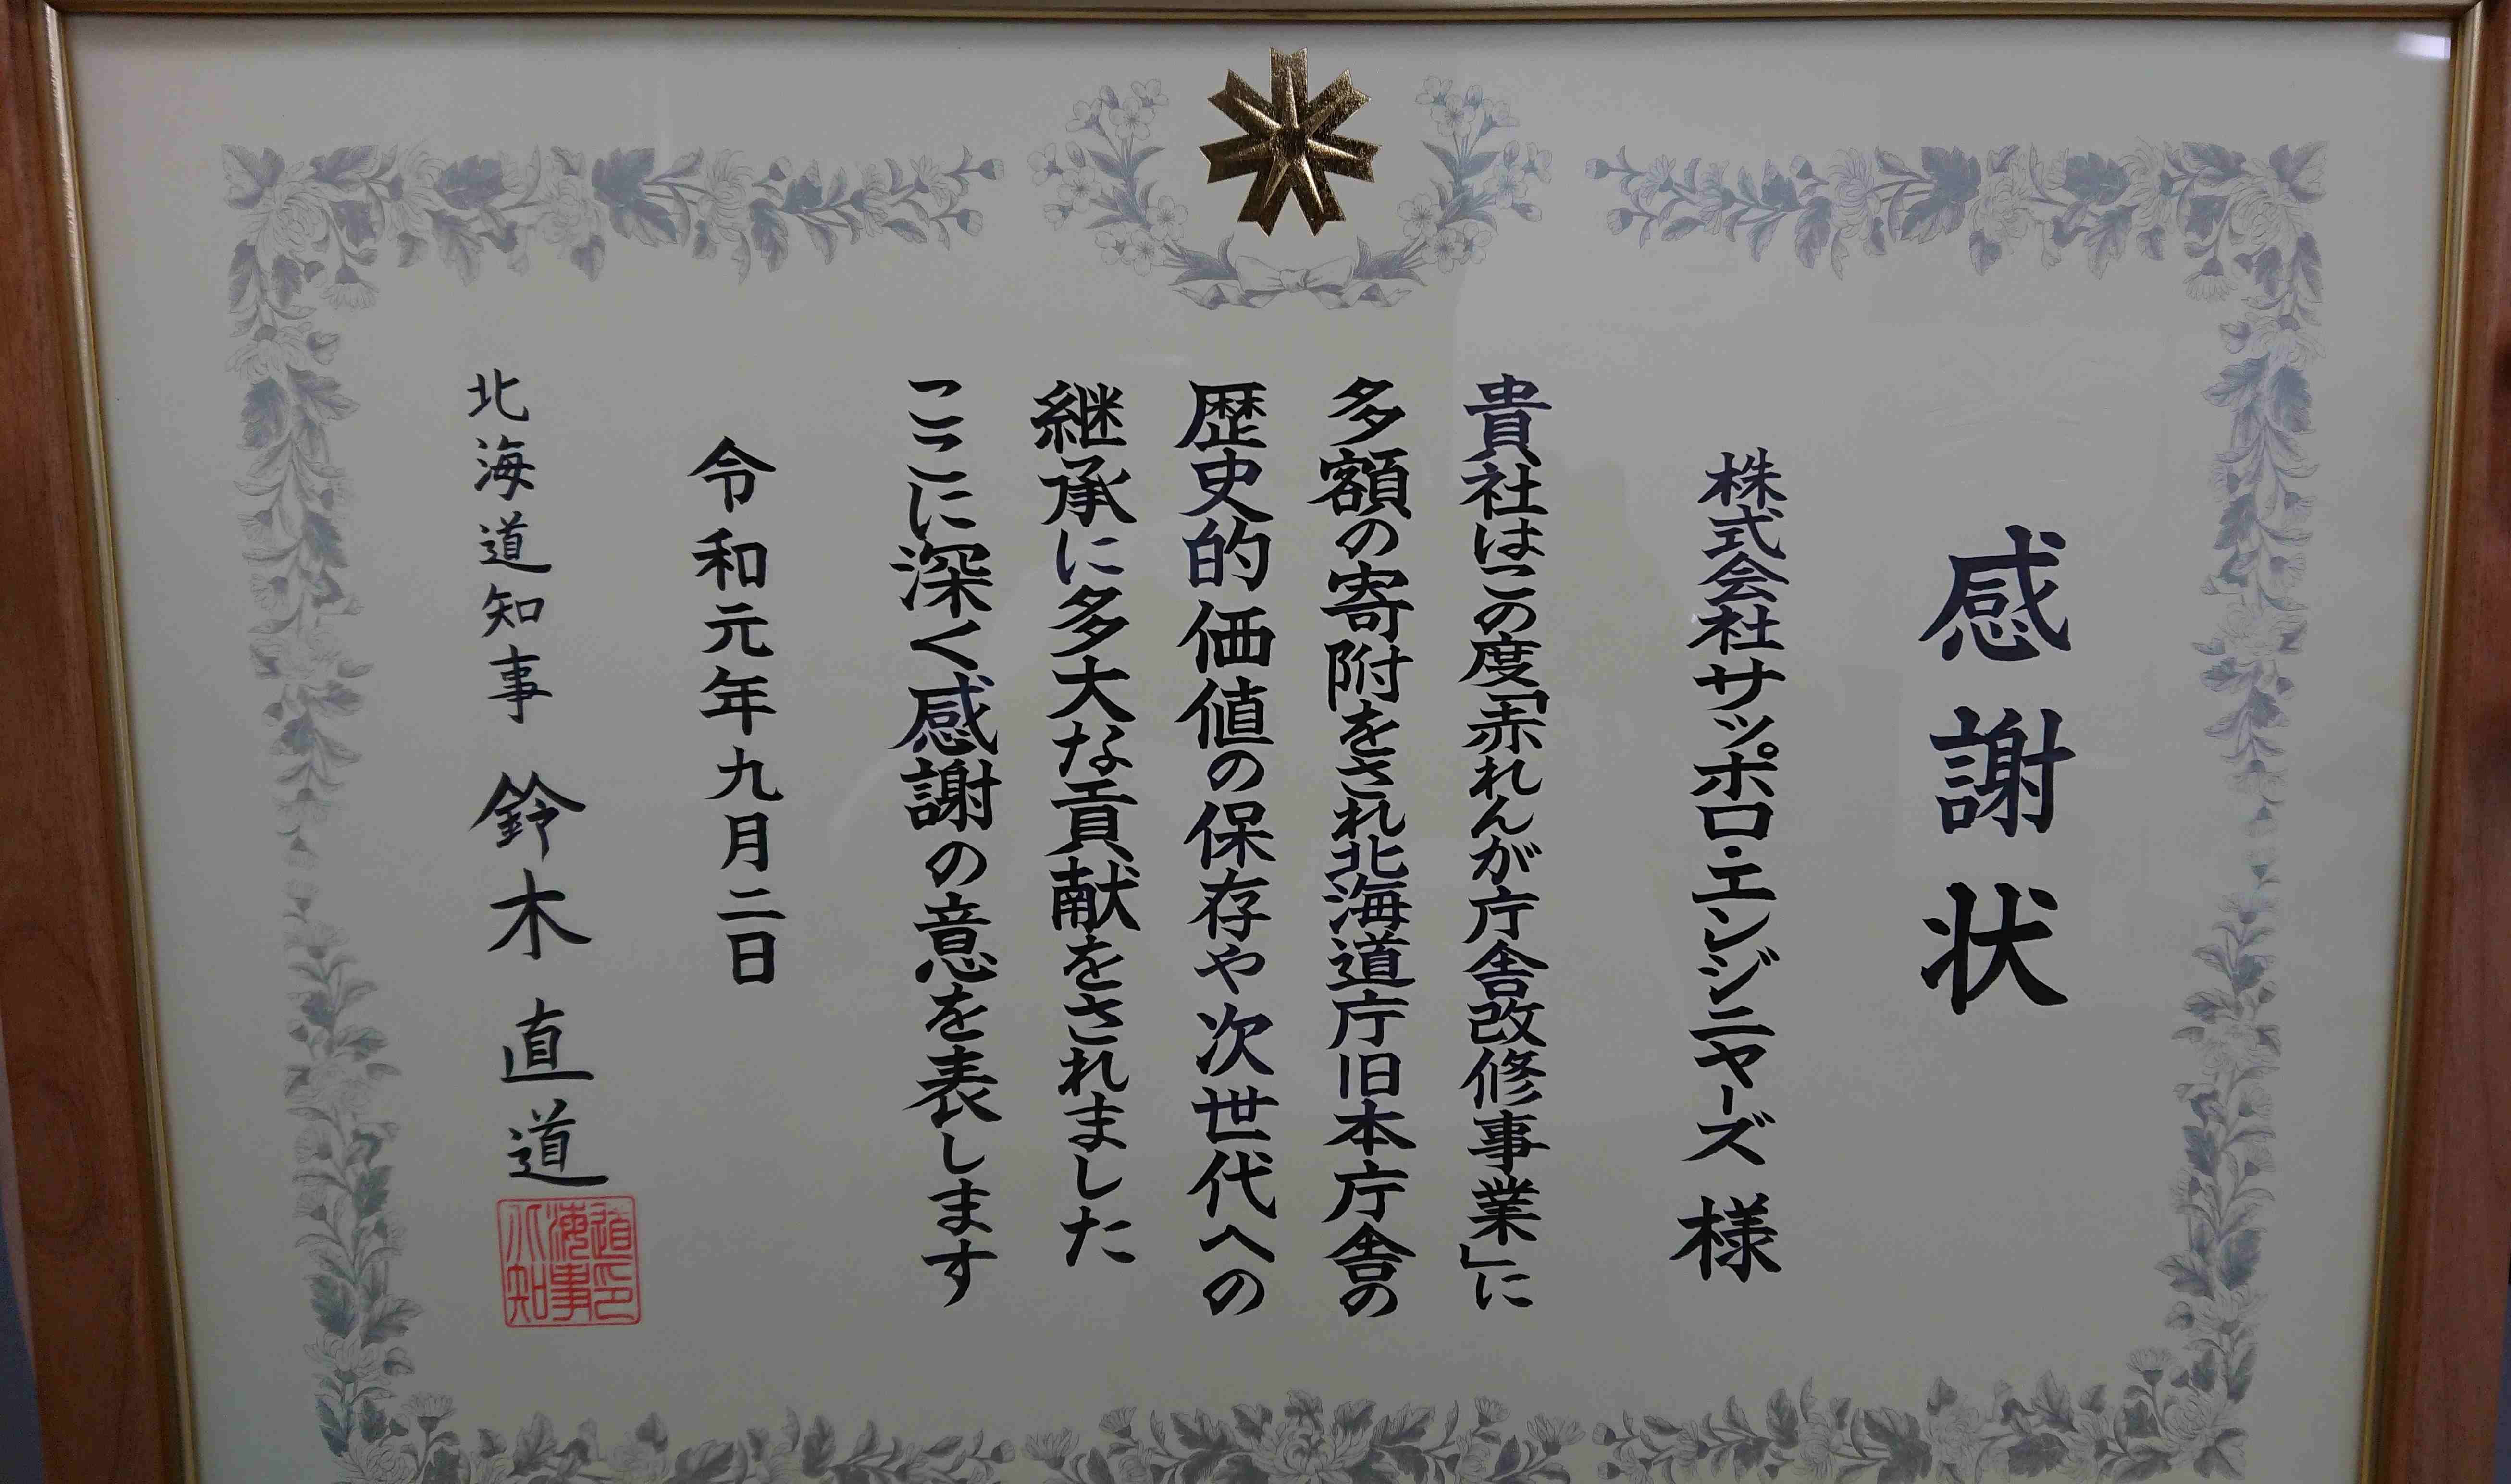 感謝状
株式会社サッポロ・エンジニヤーズ 様
貴社はこの度「赤れんが庁舎改修事業」に
多額の寄附をされ北海道庁旧本庁舎の
歴史的価値の保存や次世代への
継承に多大な貢献をされました
ここに深く感謝の意を表します
令和元年九月二日
北海道知事 鈴木直道
道印
海事
北知